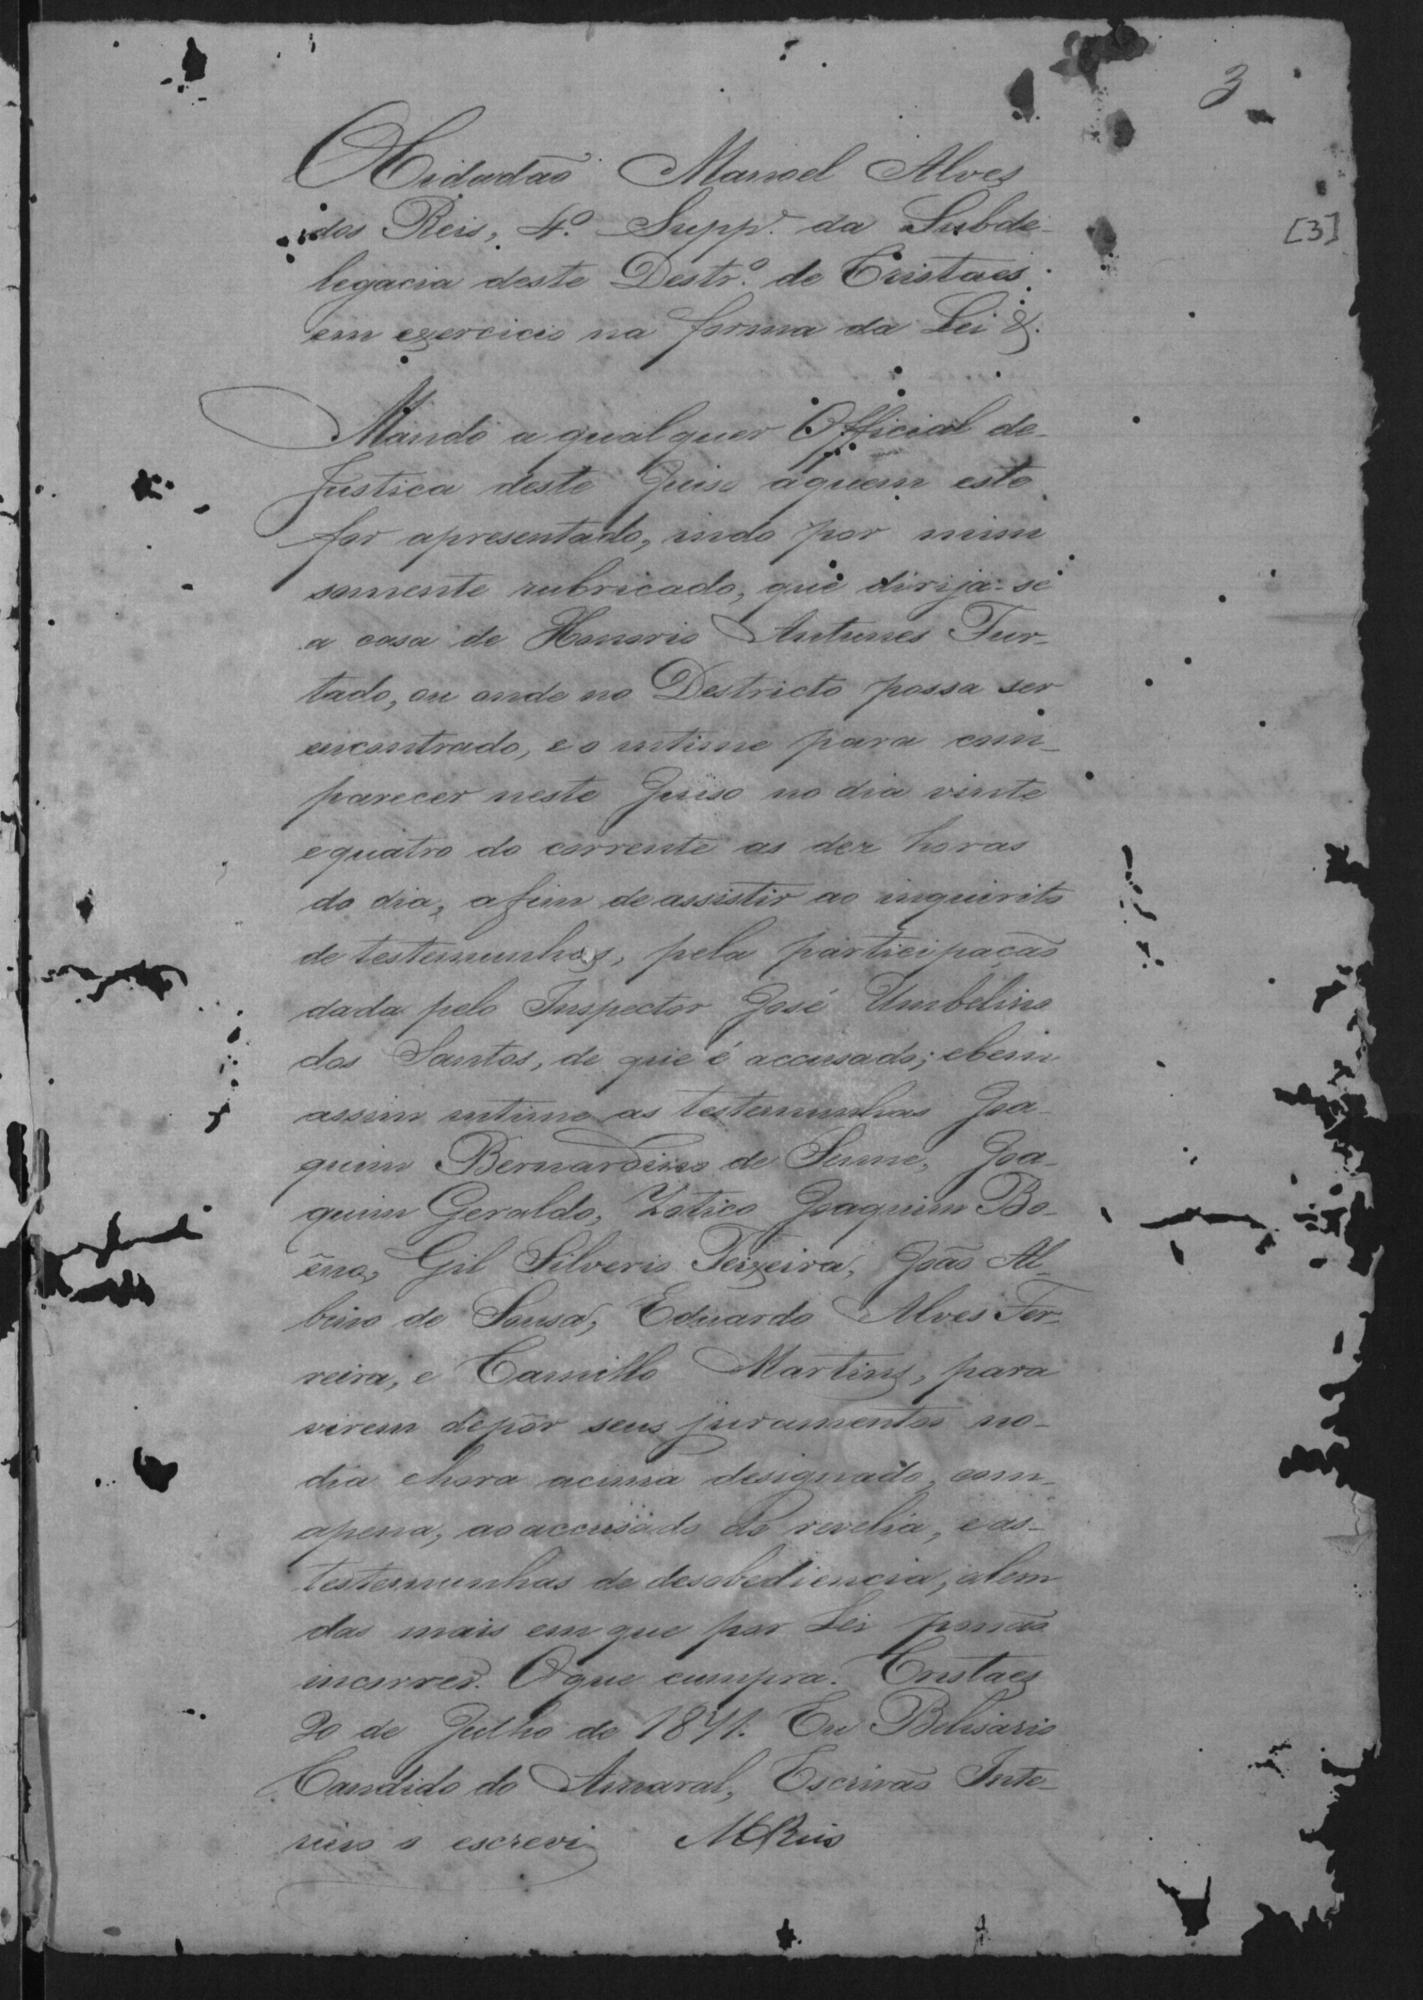 3
[3]
O Cidadão Manoel Alves
dos Reis, 4.º Supp.e da Subde-
legacia deste Destr.º de Cristaes
em exercicio na forma da Lei &.
Mando a qualquer Official de
Justica deste Juiso aquem este
for apresentado, indo por mim
somente rubricado, que dirija-se
a casa de Honorio Antunes Fur-
tado, ou onde no Destricto possa ser
encontrado, e o intime para com-
parecer neste Juiso no dia vinte
e quatro do corrente as dez horas
do dia, afim de assistir ao inquirito
de testemunhas, pela participacão
dada pelo Inspector José Umbelino
dos Santos, de que é accusado; ebem
assim intime as testemunhas Joa-
quim Bernardino de Senne, Joa-
quim Geraldo, Zotico Joaquim Bo-
eno, Gil Silverio Teixeira, João Al-
bino de Sousa, Eduardo Alves Fer-
reira, e Camillo Martins, para
virem depôr seus juramentos no
dia ehora acima designado, com
apena, ao accusado de revelia, e as
testemunhas de desobediencia, alem
das mais em que por Lei possão
incorrer. O que cumpra. Cristaes
20 de Julho de 1871. Eu Belisario
Candido do Amaral, Escrivão Inte-
rino o escrevi MReis